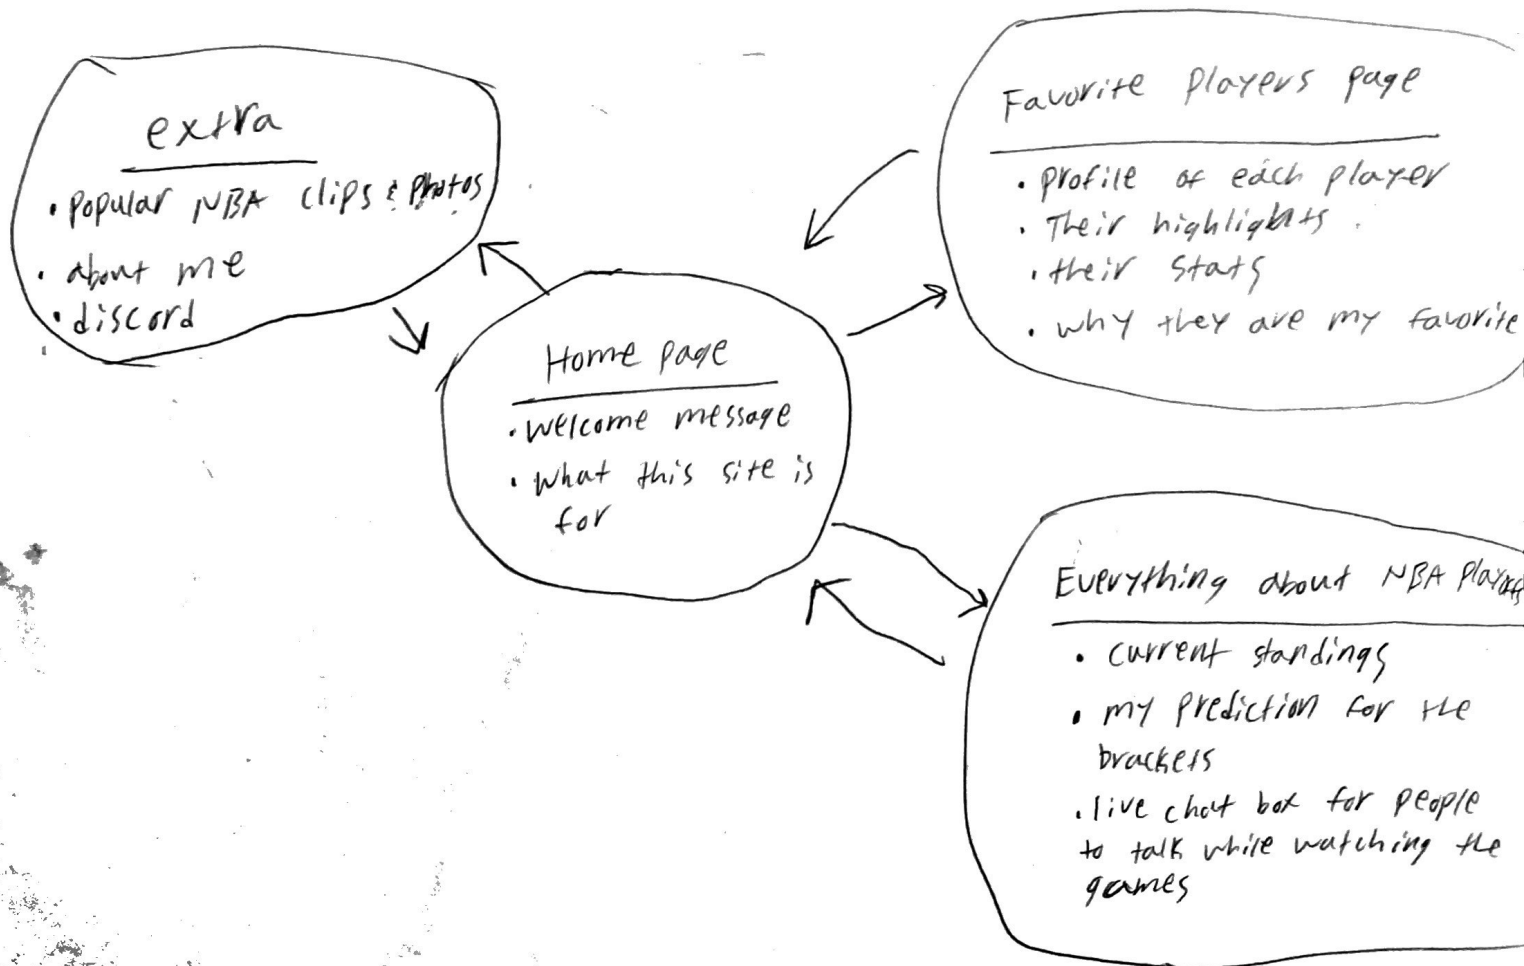 extra
• popular NBA clips & photos
• about me
• discord
Home page
• welcome message
• what this site is
for
Favorite players page
• profile of each player
• Their highlights
• their stats
• why they are my favorite
Everything about NBA Playoffs
• current standings
• my prediction for the
brackets
• live chat box for people
to talk while watching the
games